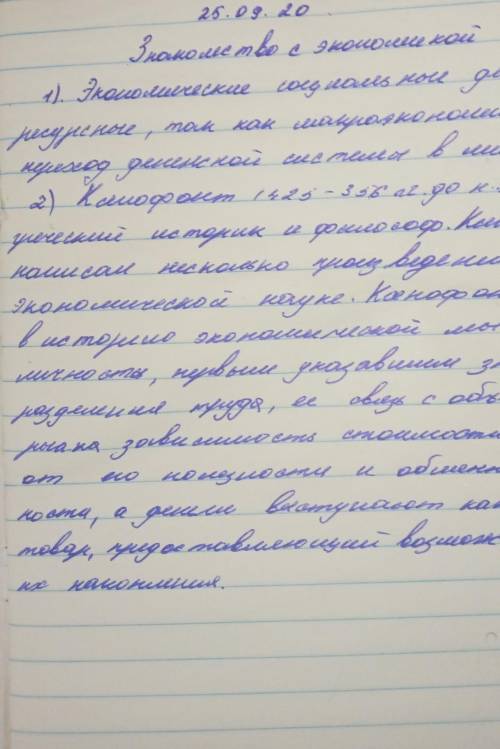 25.09.20
Знакомство с экономикой
1). Экономические социальные
ресурсные, так как макроэкономи
переход денежной системы в
2) Ксенофонт (425-356 гг. до н.
греческий историк и философ.
написал несколько произведени
экономической науке. Ксенофо
в историю экономической мы
личность, первым указавшим
разделения труда, ее связь с объ
рынка зависимость стоимости
от его полезности и обмен
ности, а деньги выступают как
товар, предоставляющий возмож
их накопления.